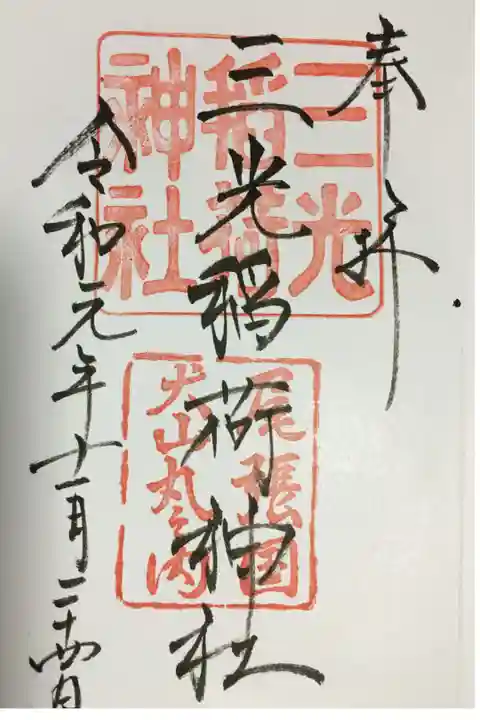 奉拝
三光稲荷神社
令和元年十一月二十四日
三光
稲荷
神社
尾張国
犬山丸之内